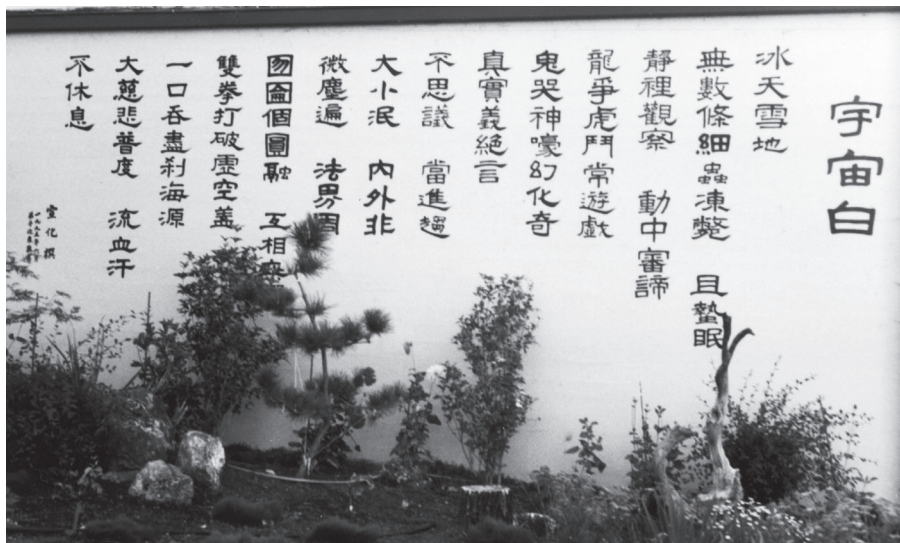 宇宙白
冰天雪地
無數條細蟲凍斃 且蟄眠
靜裡觀察 動中審諦
龍爭虎鬥 常遊戲
鬼哭神嚎幻化奇
真實義絕言
不思議 當進趨
大小泯 內外非
微塵遍 法界周
囫圇個圓融 互相
雙拳打破虛空蓋
一口吞盡剎海源
大慈悲普度 流血汗
不休息
宣化 撰